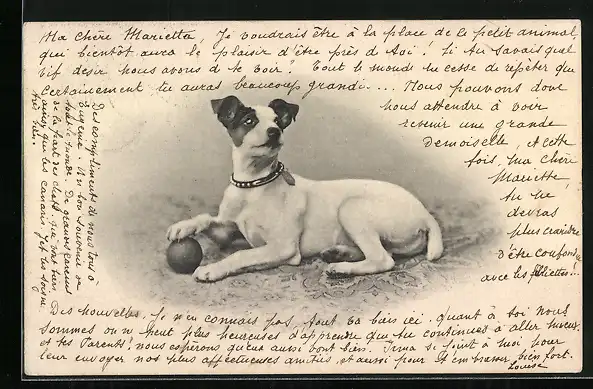 Ma chère Marietta, Je voudrais être à la place de le petit animal
qui bientôt aura le plaisir d'être près de toi! Si tu savais quel
vif désir nous avons de te voir! Tout le monde ne cesse de répéter que
Certainement tu auras beaucoup grandi.... Nous pouvons donc
nous attendre à voir
revenir une grande
demoiselle, A cette
fois, ma chère
Mariette,
tu ne
devras
plus craindre
d'être
avec les
Des compliments de nous tous à
Eugénie. Un bon souvenir de
tout le monde. De grandes caresses
de la part des chats, qui vont bien
ainsi que les canaris,
très bien.
Des nouvelles, Je n'en connais pas, tout va bien ici. quant à toi nous
sommes on ne peut plus heureuses d'apprendre que tu continues à aller mieux
et tes Parents! nous espérons qu'eux aussi vont bien. Irma se joint à moi pour
leur envoyer nos plus affectueuses amitiés, et aussi pour t'embrasser bien fort.
Louise